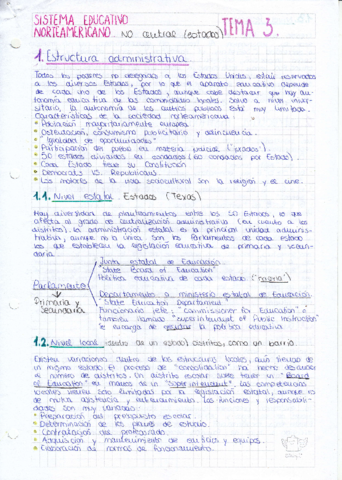 SISTEMA EDUCATIVO
NORTEAMERICANO. NO central (estados) TEMA 3.
1. Estructura administrativa
Todos los poderes no delegados a los Estados Unidos, están reservados
a los diversos Estados, por lo que el aparato educativo depende
de cada uno de los Estados, aunque cabe destacar que hay au-
tonomía educativa de las comunidades locales. Salvo a nivel univer-
sitario, la autonomía de los centros públicos está muy limitada.
Características de la sociedad norteamericana:
• Población mayoritariamente europea.
• Ostentación, consumismo publicitario y delincuencia.
• "Igualdad de oportunidades"
• Participación del pueblo en materia judicial ("jurados").
• 50 estados divididos en condados (60 condados por Estado).
• Cada Estado tiene su Constitución
• Democrats VS. Republicans
• Los motores de la vida sociocultural son la religión y el cine.
1.1. Nivel estatal Estados (Texas)
Hay diversidad de planteamientos entre los 50 Estados, lo que
afecta al grado de centralización administrativa (en cuanto a los
distritos). La administración estatal es la principal unidad adminis-
trativa, aunque no la única. Son los Parlamentos de cada estado
los que establecen la legislación educativa de primaria y secun-
daria.
Junta estatal de Educación
"State Board of Education"
Política educativa de cada estado
Parlamento
Primaria y
Secundaria
Departamento o ministerio estatal de Educación
"State Education Department"
Funcionario jefe: "commissioner for Education" o
también llamado "superintendent of Public Instruction"
se encarga de ejecutar la política educativa
1.2. Nivel local (dentro de un estado) distritos, como un barrio
Existen variaciones dentro de las estructuras locales, aún dentro de
un mismo estado. El proceso de "consolidación" ha hecho descender
el número de distritos. Un distrito escolar suele tener un "Board
of Education" en manos de un "superintendent". Las competencias
locales vienen sólo limitadas por la legislación estatal, aunque es
de mutua asistencia y entendimiento. Las funciones y responsabili-
dades son muy variadas:
• Preparación del presupuesto escolar.
• Determinación de los planes de estudio.
• Contratación del profesorado.
• Adquisición y mantenimiento de edificios y equipos.
• Elaboración de normas de funcionamiento.